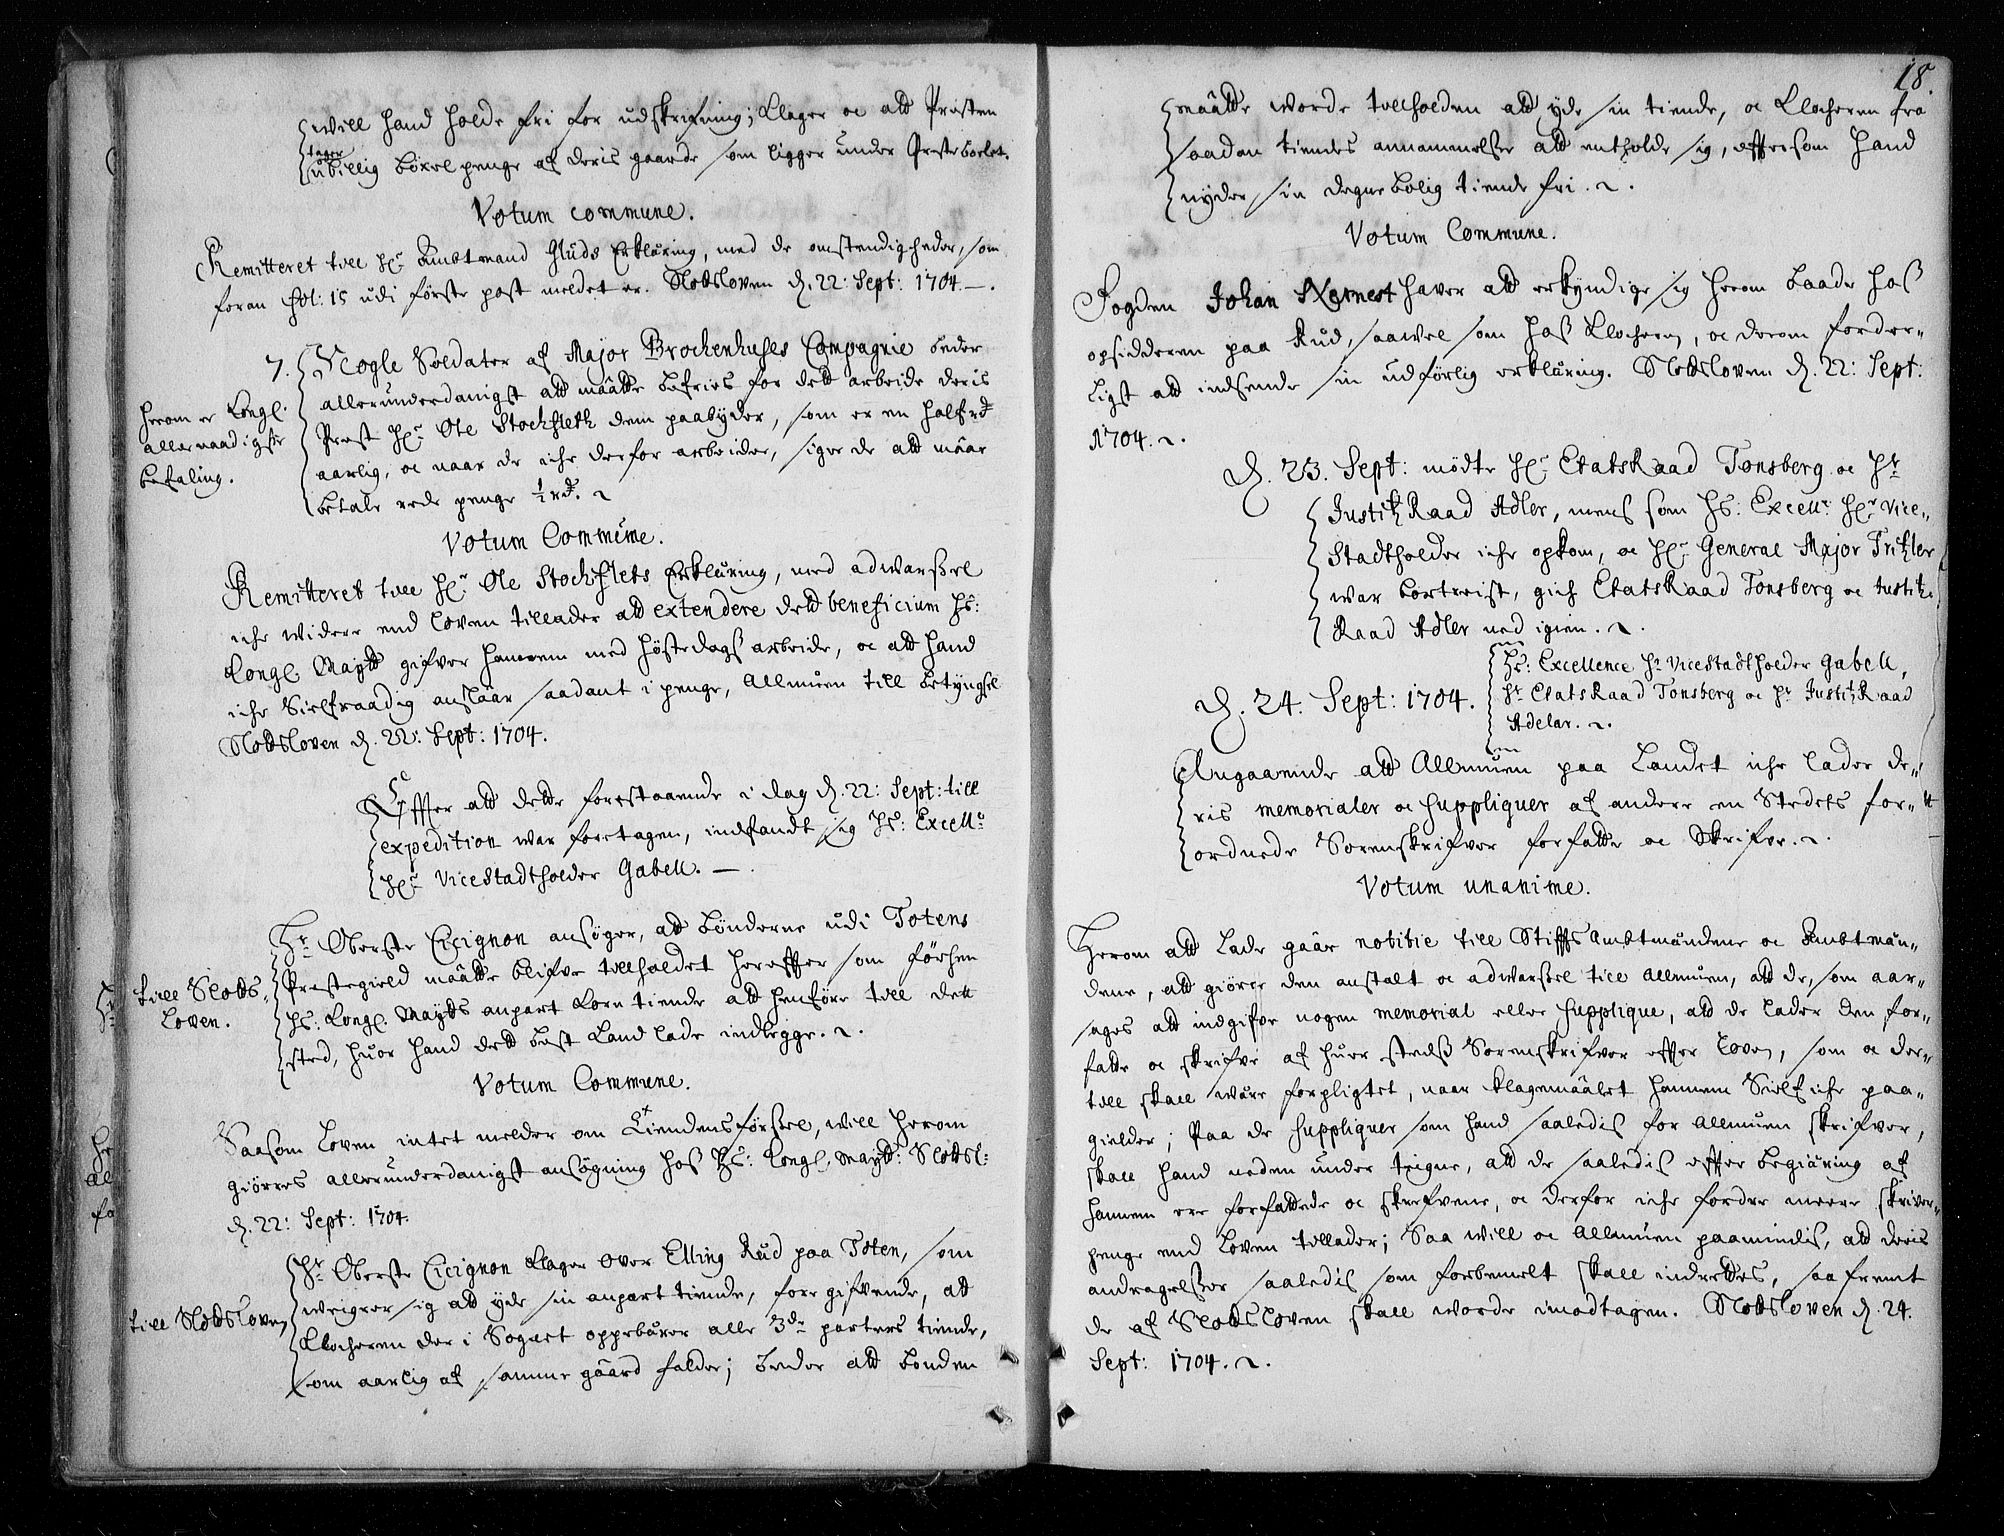 will hand holde fri for udskrifning; klager oc att Presten
tager
ubillig böxel penge af deris gaarde som ligger under Prestebolet.
Votum commune.
Remitteret till Hr. Ambtmand Glüds Erklæring, med de omstendigheder, som
foran fol: 15 udi förste post meldet er. Slotsloven d. 22: Sept: 1704. —.
7. Nogle Soldater af Major Brochenhuses Compagnie beder
allerunderdanigst att maatte befries for dett arbeide deris
Prest Hr. Ole Stochfleth dem paabyder, som er en half rdr
aarlig, oc naar de iche derfor arbeider, siger de att maae
betale rede penge ½ rdr.
herom er Kongl.
allernaadigste
befaling.
Votum Commune.
Remitteret till Hr. Ole Stochflets Erklæring, med adwarssel
iche widere end loven tillader att extendere dett beneficium Hs:
Kongl. Maytt gifver hannem med höstedags arbeide, oc att hand
iche Sielfraadig anslaar saadant i penge, Allmuen till betyngsel
Slotsloven d. 22: Sept: 1704.
Effter att dette forestaaende i dag d. 22: Sept: till
expedition war foretagen, indfandt sig Hs: Excell:
Hr. ViceStadtholder Gabell. —.
Hr. Oberste Cicignon ansöger, att bönderne udi Totens
Prestegield maatte blifve tilholdet hereffter som förhen
Hs: Kongl. Mayts anpart Korn tiende att henföre till dett
sted, huor hand dett best kand lade indlegge.
till Slots
loven.
Votum Commune.
Saasom loven intet melder om Tiendens förssel, will herom
giörres allerunderdanigst ansögning hos Hs: Kongl. Maytt: Slotsl:
d. 22: Sept: 1704.
Hr. Oberste Cicignon klager over Elling Rud paa Toten, som
weigrer sig att yde sin anpart tiende, foregifvende, att
Klocheren der i Sognet oppebærer alle 3de parters tiende,
som aarlig af samme gaard falder; beder att bonden
till Slotsloven
18.
maatte worde tilholden att yde sin tiende, oc Klocheren fra
saadan tiendes annammelsse att entholde sig, effter som hand
nyder sin degnebolig tiende fri.
Votum Commune.
Fogden Johan Wernest haver att erkyndige sig herom baade hoss
opsidderen paa Rud, saavel som hoss Klocheren, oc derom forder-
ligst att indsende sin udförlig erklæring. Slotsloven d. 22: Sept:
1704.
d. 23. Sept: mödte Hr. EtatsRaad Tonsberg oc Hr.
JustitzRaad Adler, mens som Hs: Excell: Hr. Vice-
Stadtholder iche opkom, oc Hr. General Major Tritzler
war bortreist, gich EtatsRaad Tonsberg oc Justitz
Raad Adler ned igien.
d. 24. Sept: 1704.
Hs: Excellence Hr. ViceStadtholder Gabell,
Hr. EtatsRaad Tonsberg oc Hr. JustitzRaad
Adelar.
Angaaende att Allmuen paa Landet iche lader de-
ris memorialer oc suppliquer af andere en Stedets for-
ordnede Sorenskrifver forfatte oc Skrifve.
Votum unanime.
Herom att lade gaae notitie till Stiffts Ambtmændene oc Ambtmæn-
dene, att giörre den anstalt oc adwarssel till Allmuen, att de, som aar-
sages att indgifve nogen memorial eller supplique, att de lader den for-
fatte oc skrifve af huer stedss Sorenskrifver effter Loven, som oc der-
till skall være forpligtet, naar klagemaalet hannem Sielf iche paa-
gielder; Paa de suppliquer som hand saaledis for Allmuen skrifver,
skall hand neden under tegne, att de saaledis effter begiæring af
hannem ere forfattede oc skrefvene, oc derfor iche fordre meere skriver-
penge end loven tillader; Saa will oc Allmuen paamindis, att deris
andragelsser saaledis som forbemelt skall indrettes, saa fremt
de af Slotsloven skall worde imodtagen. Slotsloven d. 24.
Sept: 1704.